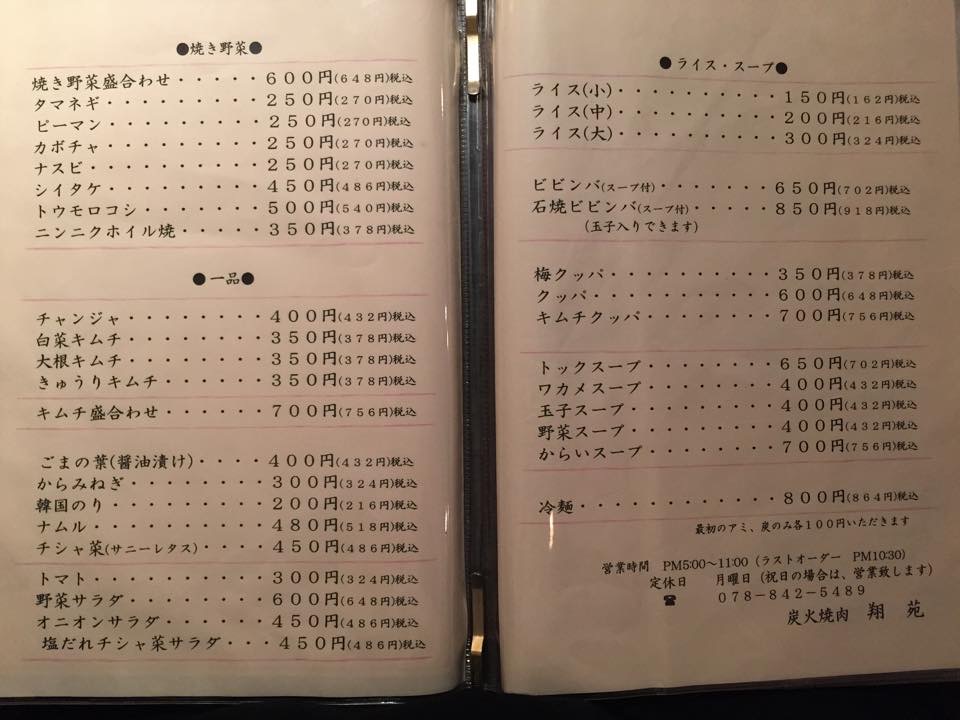 ●焼き野菜●
焼き野菜盛合わせ・・・・・６００円(６４８円)税込
タマネギ・・・・・・・・・２５０円(２７０円)税込
ピーマン・・・・・・・・・２５０円(２７０円)税込
カボチャ・・・・・・・・・２５０円(２７０円)税込
ナスビ・・・・・・・・・・２５０円(２７０円)税込
シイタケ・・・・・・・・・４５０円(４８６円)税込
トウモロコシ・・・・・・・５００円(５４０円)税込
ニンニクホイル焼・・・・・３５０円(３７８円)税込
●一品●
チャンジャ・・・・・・・・４００円(４３２円)税込
白菜キムチ・・・・・・・・３５０円(３７８円)税込
大根キムチ・・・・・・・・３５０円(３７８円)税込
きゅうりキムチ・・・・・・３５０円(３７８円)税込
キムチ盛合わせ・・・・・・７００円(７５６円)税込
ごまの葉(醤油漬け)・・・・４００円(４３２円)税込
からみねぎ・・・・・・・・３００円(３２４円)税込
韓国のり・・・・・・・・・２００円(２１６円)税込
ナムル・・・・・・・・・・４８０円(５１８円)税込
チシャ菜(サニーレタス)・・・・４５０円(４８６円)税込
トマト・・・・・・・・・・３００円(３２４円)税込
野菜サラダ・・・・・・・・６００円(６４８円)税込
オニオンサラダ・・・・・・４５０円(４８６円)税込
塩だれチシャ菜サラダ・・・４５０円(４８６円)税込
●ライス・スープ●
ライス(小)・・・・・・・・・・１５０円(１６２円)税込
ライス(中)・・・・・・・・・・２００円(２１６円)税込
ライス(大)・・・・・・・・・・３００円(３２４円)税込
ビビンバ(スープ付)・・・・・・・６５０円(７０２円)税込
石焼ビビンバ(スープ付)・・・・・８５０円(９１８円)税込
(玉子入りできます)
梅クッパ・・・・・・・・・・３５０円(３７８円)税込
クッパ・・・・・・・・・・・６００円(６４８円)税込
キムチクッパ・・・・・・・・７００円(７５６円)税込
トックスープ・・・・・・・・６５０円(７０２円)税込
ワカメスープ・・・・・・・・４００円(４３２円)税込
玉子スープ・・・・・・・・・４００円(４３２円)税込
野菜スープ・・・・・・・・・４００円(４３２円)税込
からいスープ・・・・・・・・７００円(７５６円)税込
冷麺・・・・・・・・・・・・８００円(８６４円)税込
最初のアミ、炭のみ各１００円いただきます
営業時間　PM5:00～11:00（ラストオーダー　PM10:30）
定休日　　月曜日（祝日の場合は、営業致します）
☎　　０７８－８４２－５４８９
炭火焼肉　翔　苑